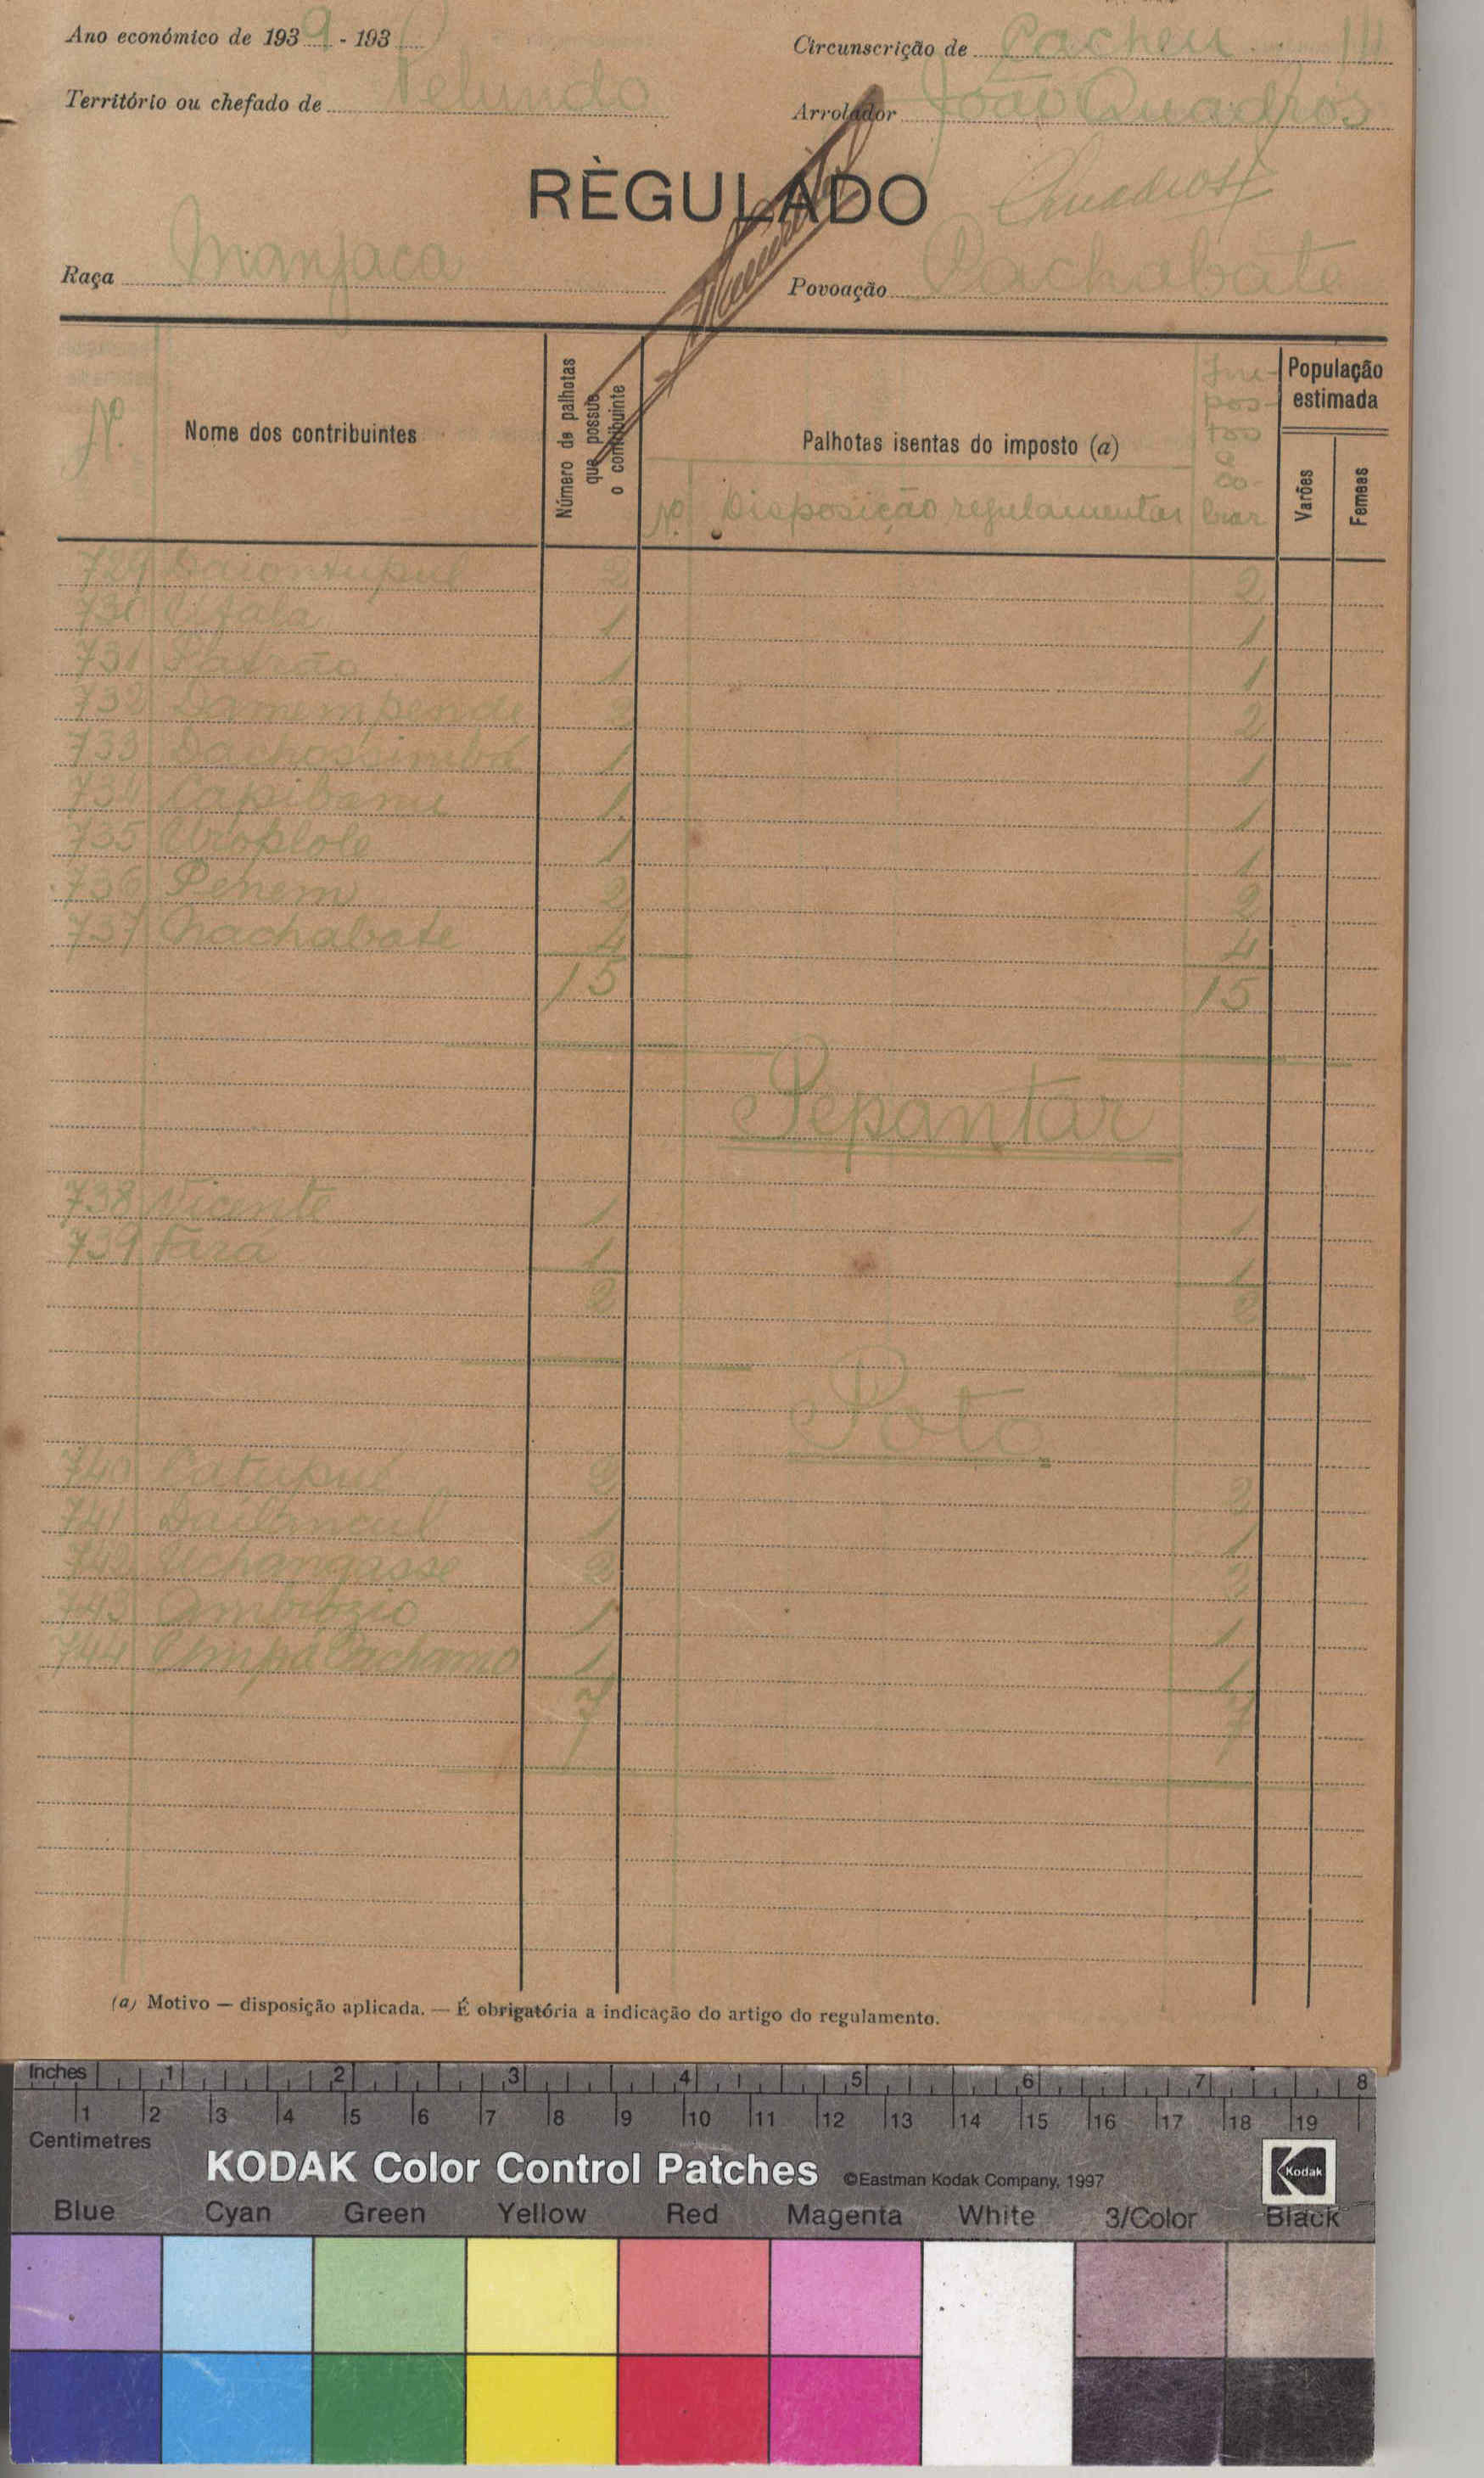 Ano económico de 1939 - 193
Circunscrição de Cacheu
Território ou chefado de Pelundo
Arrolador João Quadros
RÈGULADO
Quadros
Raça Manjaca
Povoação Pachabate
N.
Nome dos contribuintes
Número de palhotas que possue o contribuinte
Palhotas isentas do imposto (a)
Nº Disposição regulamentar
Impostos a cobrar
População estimada
Varões
Femeas
729 2 2
730 1 1
731 Patrão 1 1
732 Damempende 2 2
733 Dachossimba 1 1
734 Capibanu 1 1
735 1 1
736 Penem 2 2
737 Nachabate 4 4
15 15
Pepantar
738 Vicente 1 1
739 Fara 1 1
2 2
Poto
740 Catupué 2 2
741 1 1
742 Uchangasse 2 2
743 Ambrózio 1 1
744 Umpá Cachamo 1 1
7 7
(a) Motivo — disposição aplicada. — É obrigatória a indicação do artigo do regulamento.
Inches 1 2 3 4 5 6 7 8
1 2 3 4 5 6 7 8 9 10 11 12 13 14 15 16 17 18 19
Centimetres
KODAK Color Control Patches ©Eastman Kodak Company, 1997
Kodak
Blue Cyan Green Yellow Red Magenta White 3/Color Black